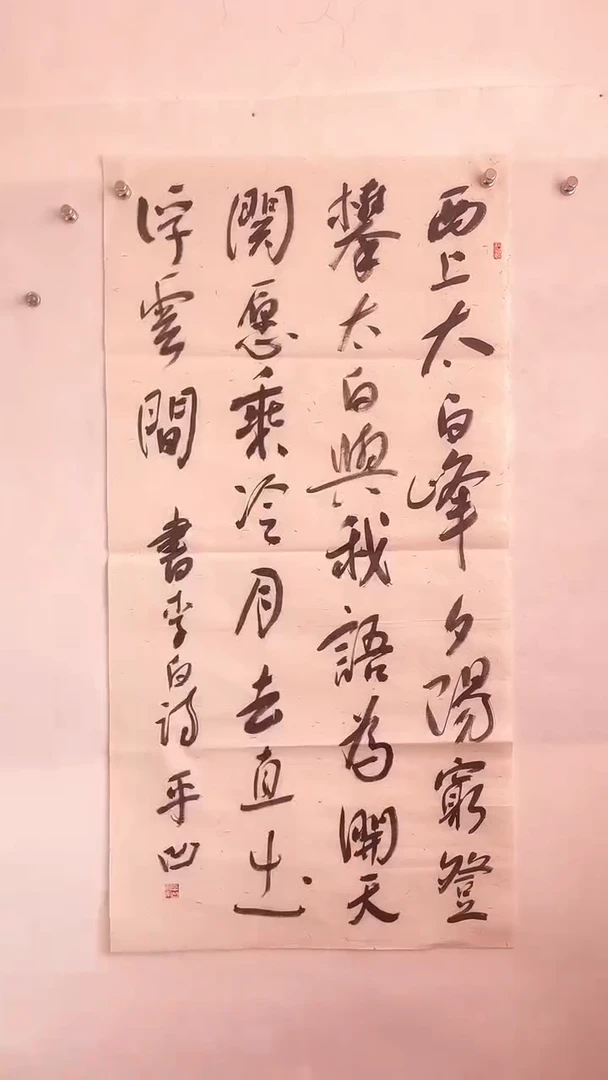 西上太白峰夕陽窮登
攀太白與我語為開天
関愿乘冷月去直出
浮雲間 書李白詩 平凹